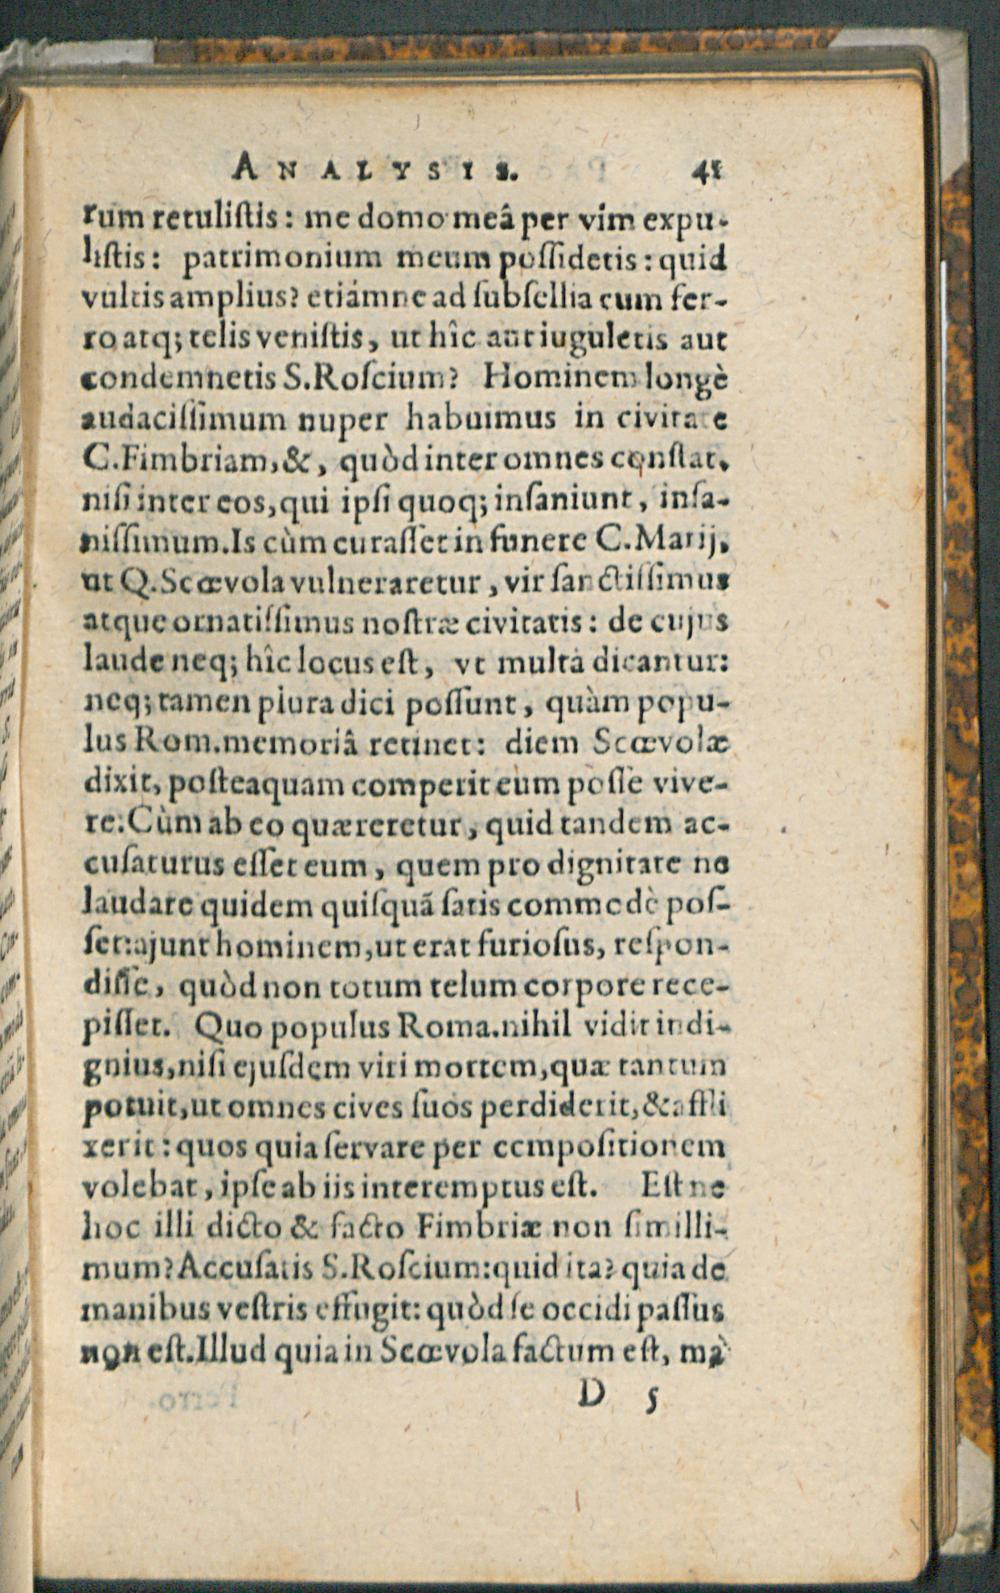 ANALYSIS. 41
rum retuliſtis: me domo meâ per vim expu-
liſtis: patrimonium meum poſſidetis: quid
vultis amplius? etiámne ad ſubſellia cum fer-
ro atq; telis veniſtis, ut hîc aut iuguletis aut
condemnetis S. Roſcium? Hominem longè
audaciſſimum nuper habuimus in civitate
C. Fimbriam, &, quòd inter omnes conſtat,
niſi inter eos, qui ipſi quoq; inſaniunt, inſa-
niſſimum. Is cùm curaſſet in funere C. Marij,
ut Q. Scœvola vulneraretur, vir ſanctiſſimus
atque ornatiſſimus noſtræ civitatis: de cujus
laude neq; hîc locus eſt, vt multa dicantur:
neq; tamen plura dici poſſunt, quàm popu-
lus Rom. memoriâ retinet: diem Scœvolæ
dixit, poſteaquam comperit eum poſſe vive-
re. Cùm ab eo quæreretur, quid tandem ac-
cuſaturus eſſet eum, quem pro dignitate ne
laudare quidem quiſquã ſatis commodè poſ-
ſet: ajunt hominem, ut erat furioſus, reſpon-
diſſe, quòd non totum telum corpore rece-
piſſet. Quo populus Roma. nihil vidit indi-
gnius, niſi ejuſdem viri mortem, quæ tantum
potuit, ut omnes cives ſuos perdiderit, & affli
xerit: quos quia ſervare per compoſitionem
volebat, ipſe ab iis interemptus eſt. Eſt ne
hoc illi dicto & facto Fimbriæ non ſimilli-
mum? Accuſatis S. Roſcium: quid ita? quia de
manibus veſtris effugit: quòd ſe occidi paſſus
non eſt. Illud quia in Scœvola factum eſt, ma
D 5